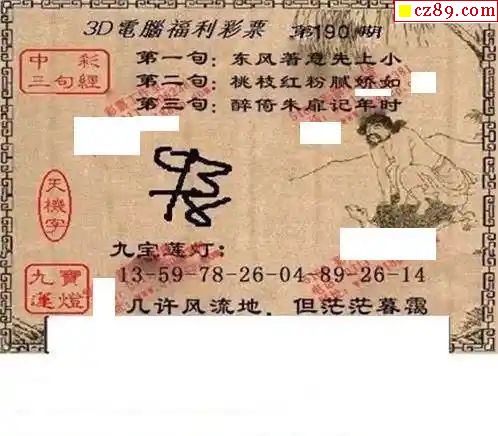 cz89.com
3D電腦福利彩票 第190期
中彩
三句經
第一句：东风著意先上小
第二句：桃枝红粉腻娇如
第三句：醉倚朱扉记年时
天機字
九宝莲灯：
九寶蓮燈
13-59-78-26-04-89-26-14
几许风流地，但茫茫暮霭